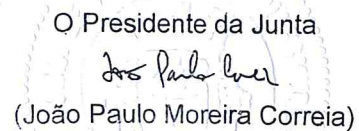 O Presidente da Junta
João Paulo Correia
(João Paulo Moreira Correia)